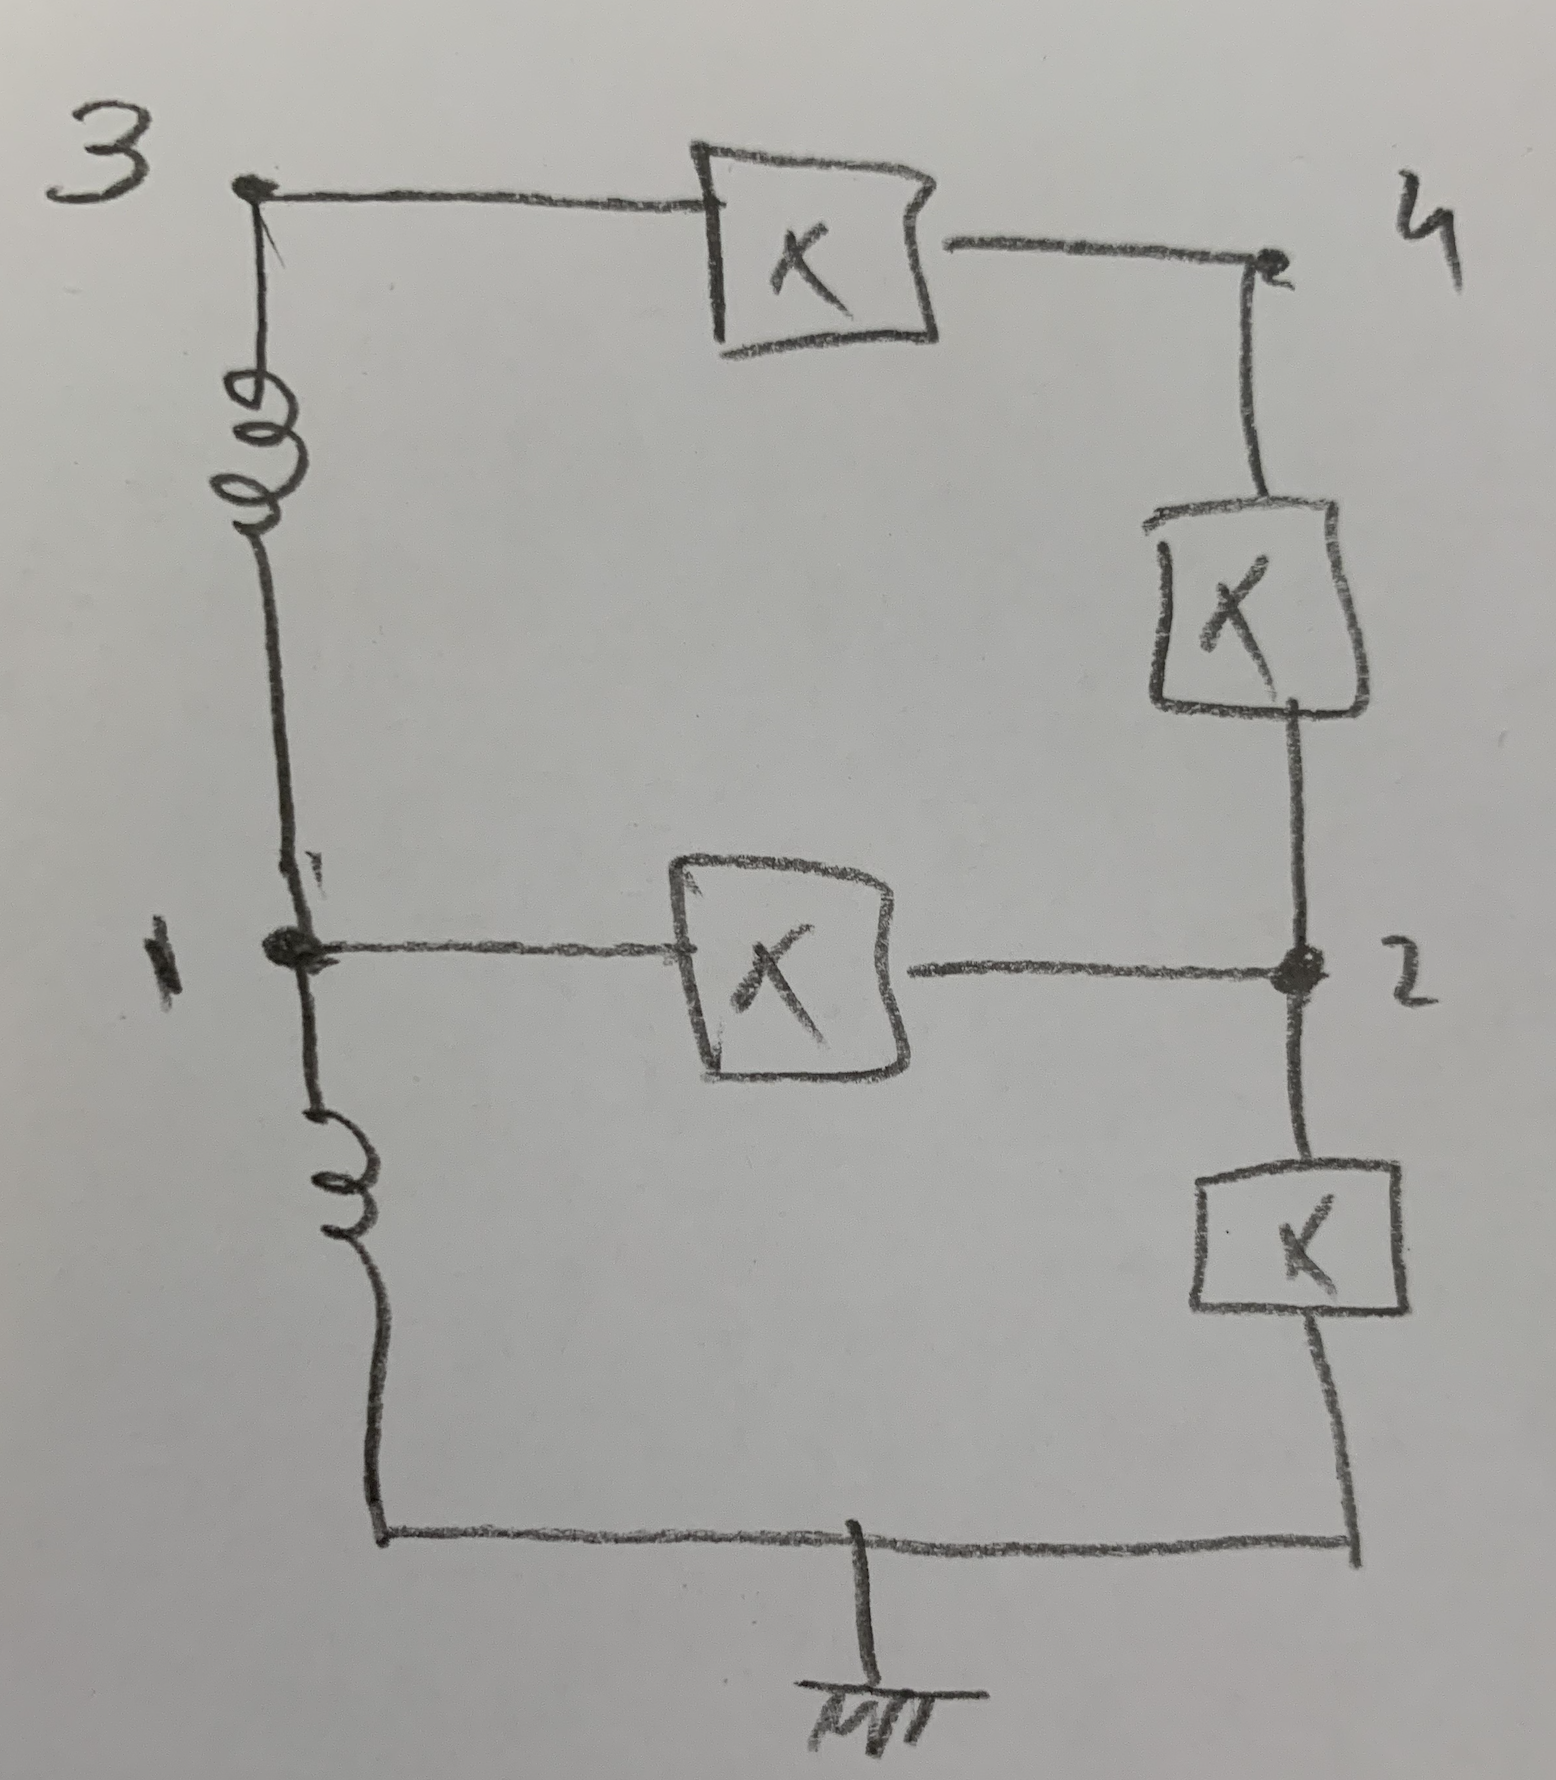 3
K
4
K
1
K
2
K